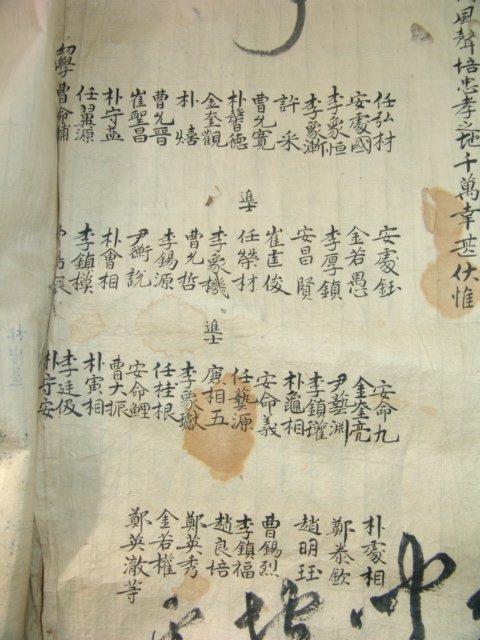 風聲培忠孝之地千萬幸甚伏惟
任弘材
安處國
李象恒
李象漸
許采
曹允寬
朴馨德
金奎觀
朴熺
曹允晉
崔聖昌
朴守益
任翼源
幼學曹命
進士
安處鈺
金若愚
李厚鎮
安昌賢
崔逵俊
任榮材
李象機
曹允哲
李錫源
尹衡說
朴會相
李鎮模
進士
安命九
金奎亮
尹藝淵
李鎮瓘
朴龜相
安命義
任藝源
唐相五
李象嶽
任柱根
安命鯉
曹大振
朴寅相
李廷伋
朴守安
朴處相
鄭泰欽
趙明珏
曹錫烈
李鎮福
趙良培
鄭英秀
金若權
鄭英澈等